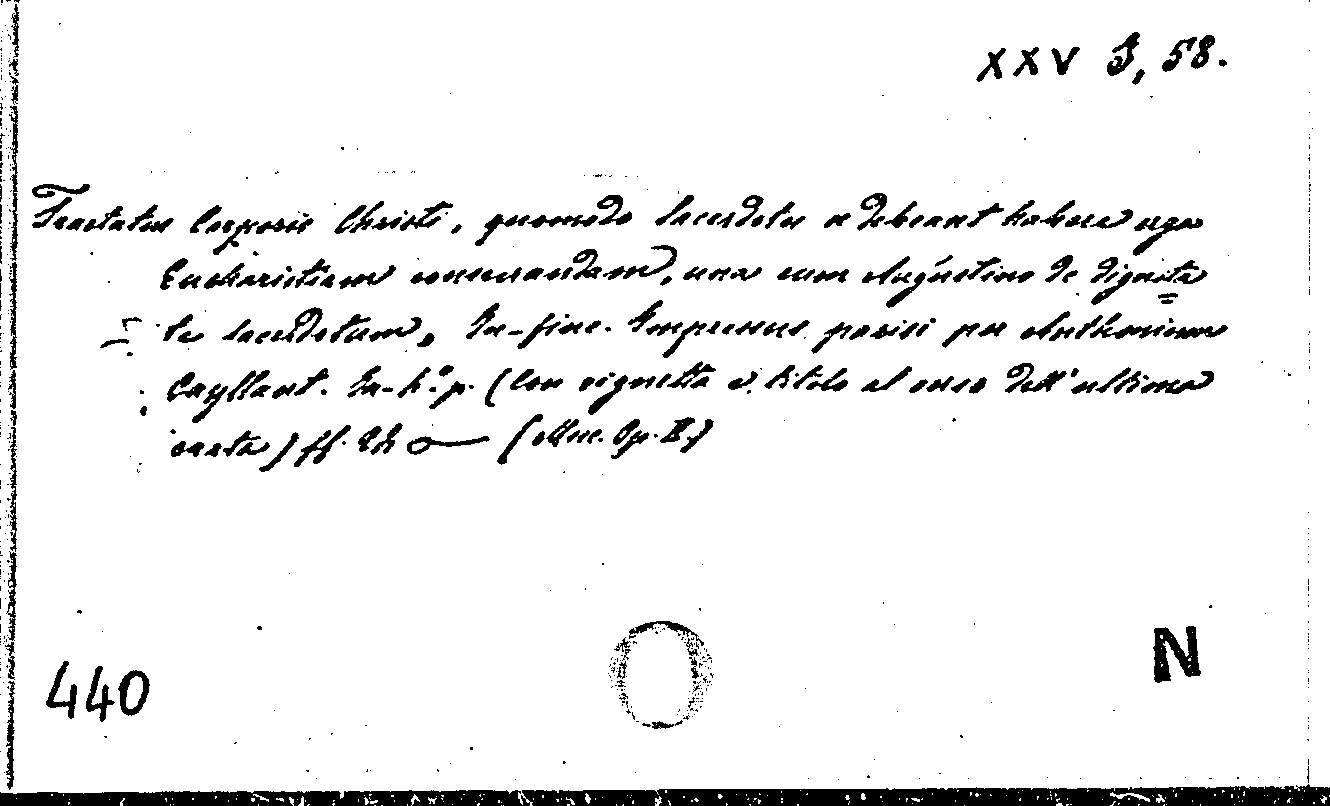 XXV G, 58.
Tractatus Corporis Christi, quomodo sacerdotes se debeant habere erga
Eucharistiam consecrandam, una cum Augustino de dignita
te sacerdotum, In-fine. Impressus parisi per Anthonium
Cayllaut. In-4.° p. (Con vignetta e titolo al verso dell'ultima
carta) ff. (Misc. Op. II.)
440
N